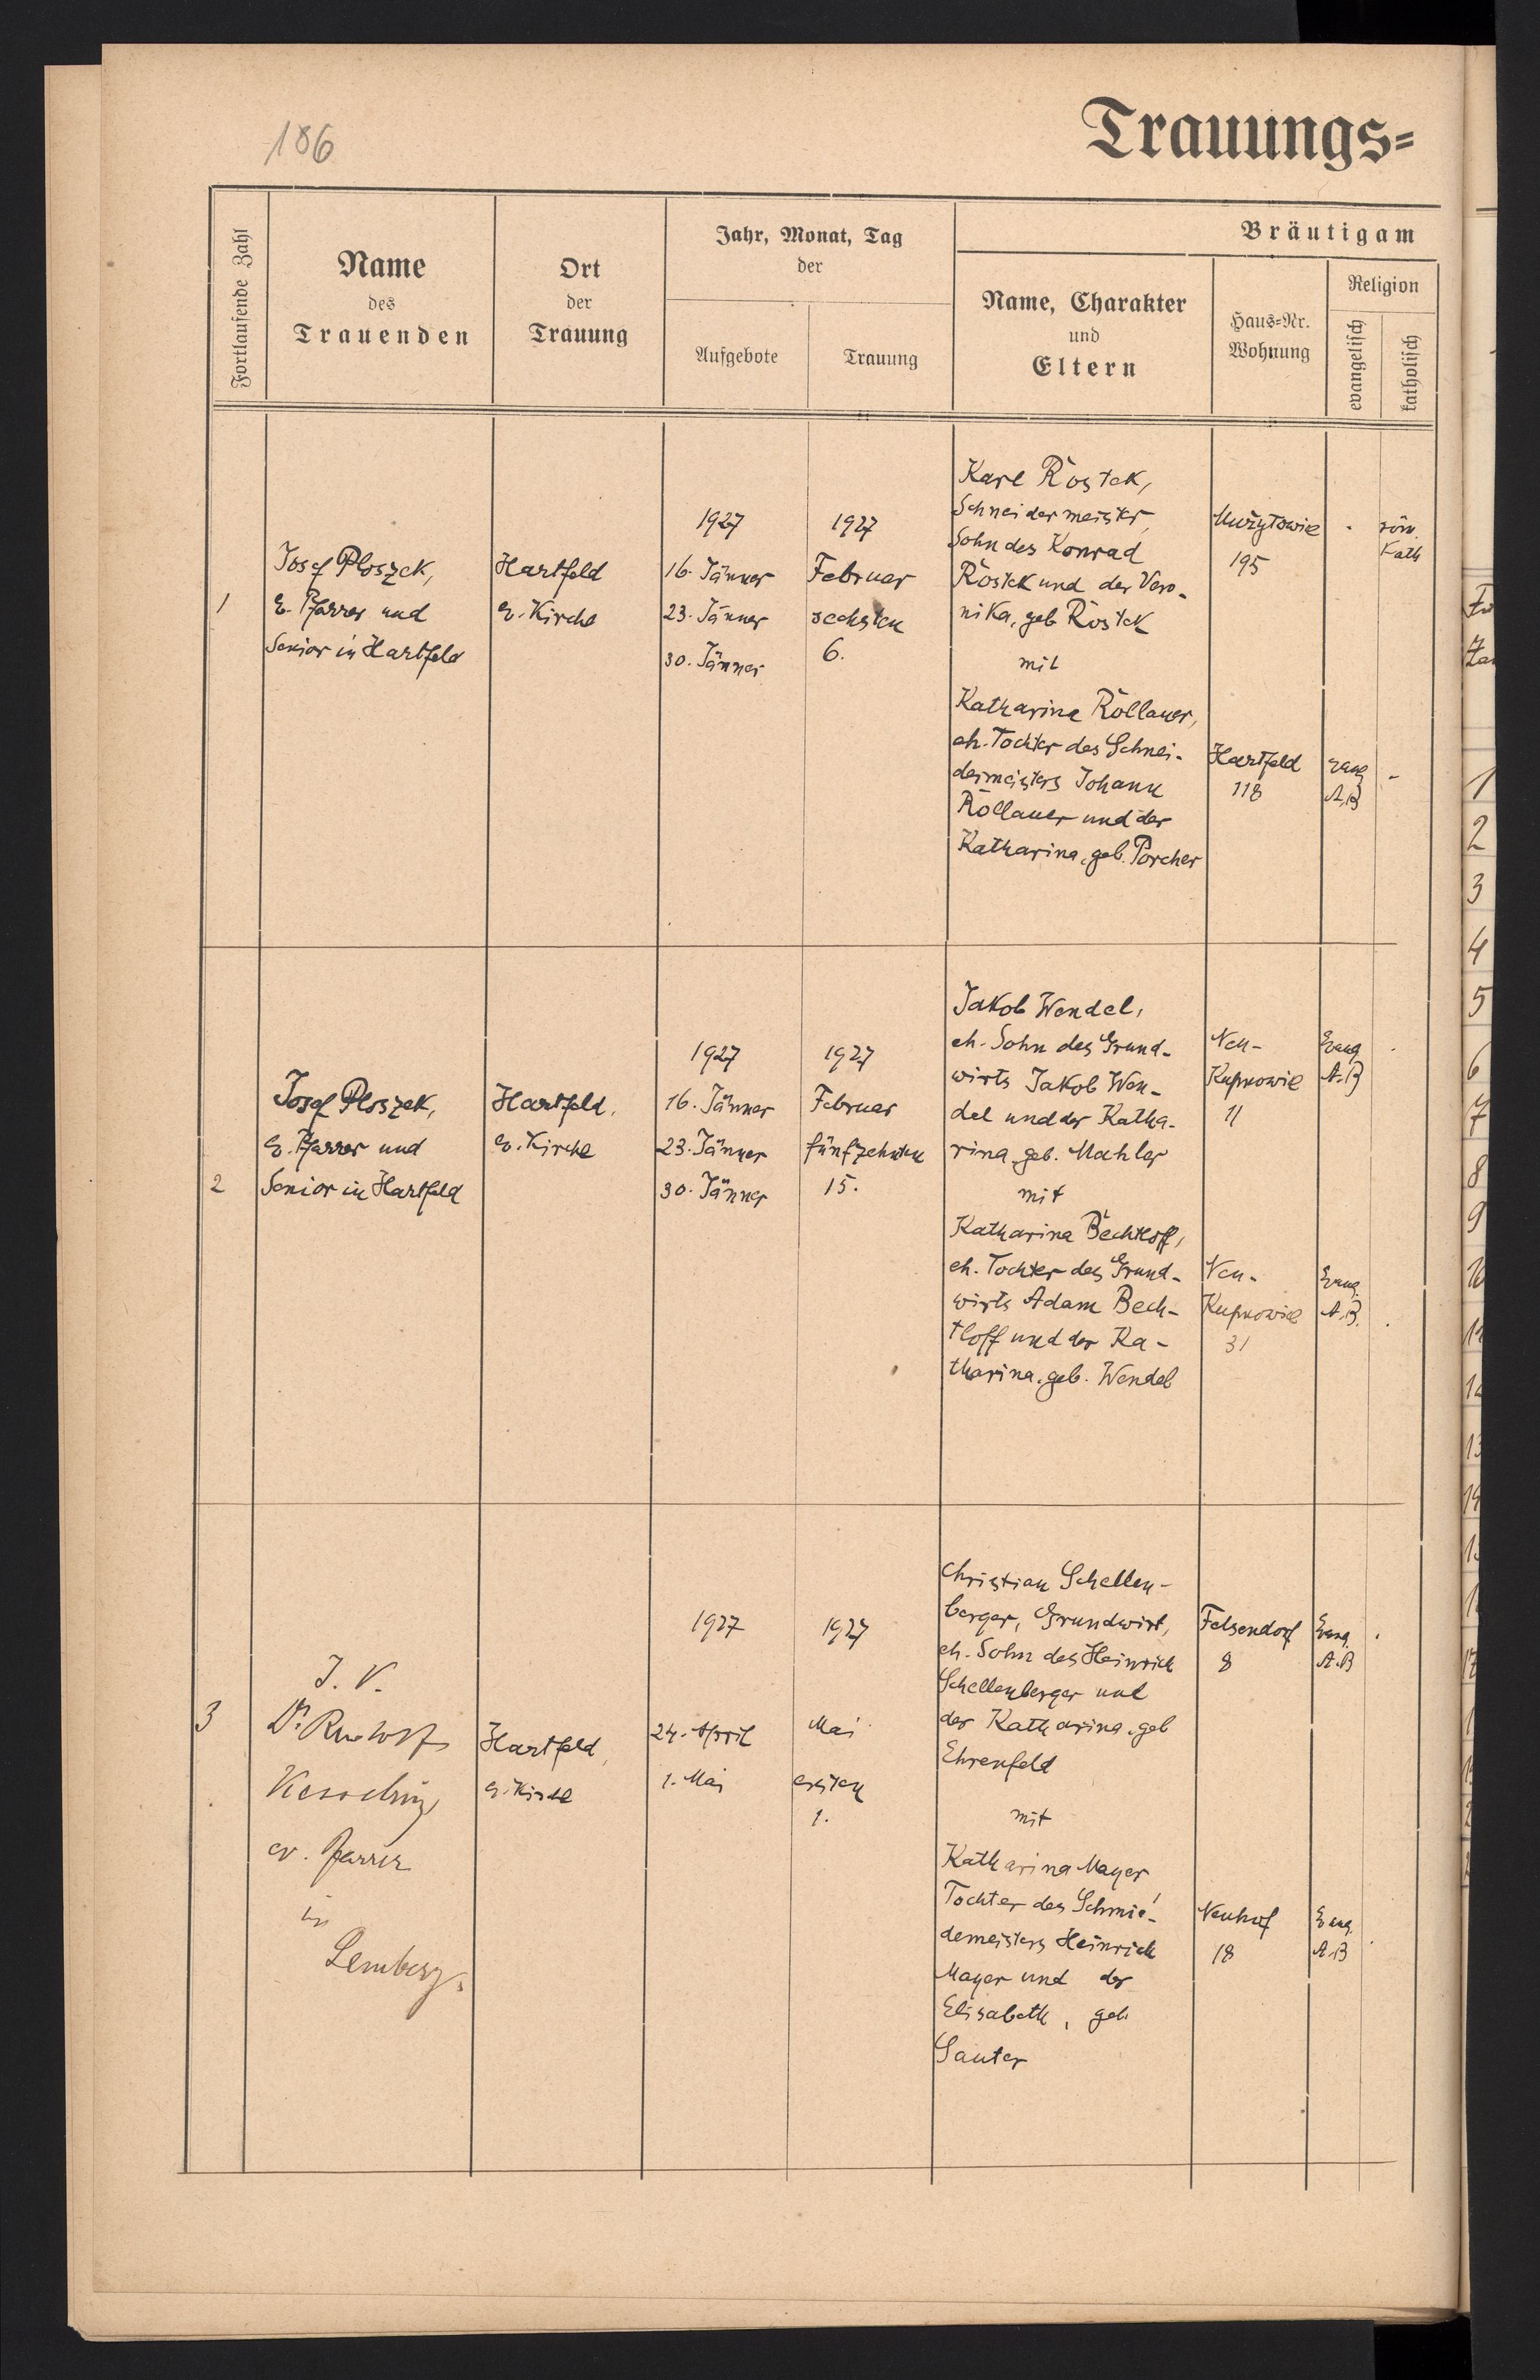 186
Trauungs=
Fortlaufende Zahl
Name
des
Trauenden
Ort
der
Trauung
Jahr, Monat, Tag
der
Aufgebote
Trauung
Bräutigam
Name, Charakter
und
Eltern
Haus=Nr.
Wohnung
Religion
evangelisch
katholisch
1
Josef Ploszek,
E. Pfarrer und
Senior in Hartfeld
Hartfeld
E. Kirche
1927
16. Jänner
23. Jänner
30. Jänner
1927
Februar
sechsten
6.
Karl Rostek,
Schneidermeister,
Sohn des Konrad
Rostek und der Vero-
nika, geb Rostek
mit
Katharina Rollauer,
eh. Tochter des Schnei-
dermeisters Johann
Rollauer und der
Katharina, geb. Porcher
195
röm.
Kath
Hartfeld
118
evang
A.B
-
2
Josef Ploszek,
E. Pfarrer und
Senior in Hartfeld
Hartfeld,
E. Kirche
1927
16. Jänner
23. Jänner
30. Jänner
1927
Februar
fünfzehnten
15.
Jakob Wendel,
eh. Sohn des Grund-
wirts Jakob Wen-
del und der Katha-
rina, geb. Mahler
mit
Katharina Bechtloff,
eh. Tochter des Grund-
wirts Adam Bech-
tloff und der Ka-
tharina, geb. Wendel
Neu-
Kupnowice
11
Evang
A.B
Neu-
Kupnowice
31
Evang.
A.B.
3
I. V.
Dr. Rudolf
Kesselring
ev. Pfarrer
in
Lemberg.
Hartfeld,
E. Kirche
1927
24. April
1. Mai
1927
Mai
ersten
1.
Christian Schellen-
berger, Grundwirt,
eh. Sohn des Heinrich
Schellenberger und
der Katharina, geb
Ehrenfeld
mit
Katharina Mayer
Tochter des Schmie-
demeisters Heinrich
Mayer und der
Elisabeth, geb.
Sauter
Felsendorf
8
Evang.
A.B
Neuhof
18
Evang.
A.B
1
2
3
4
5
6
7
8
9